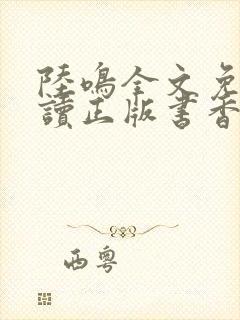 陸鳴全文免
讀正版書香
西粵